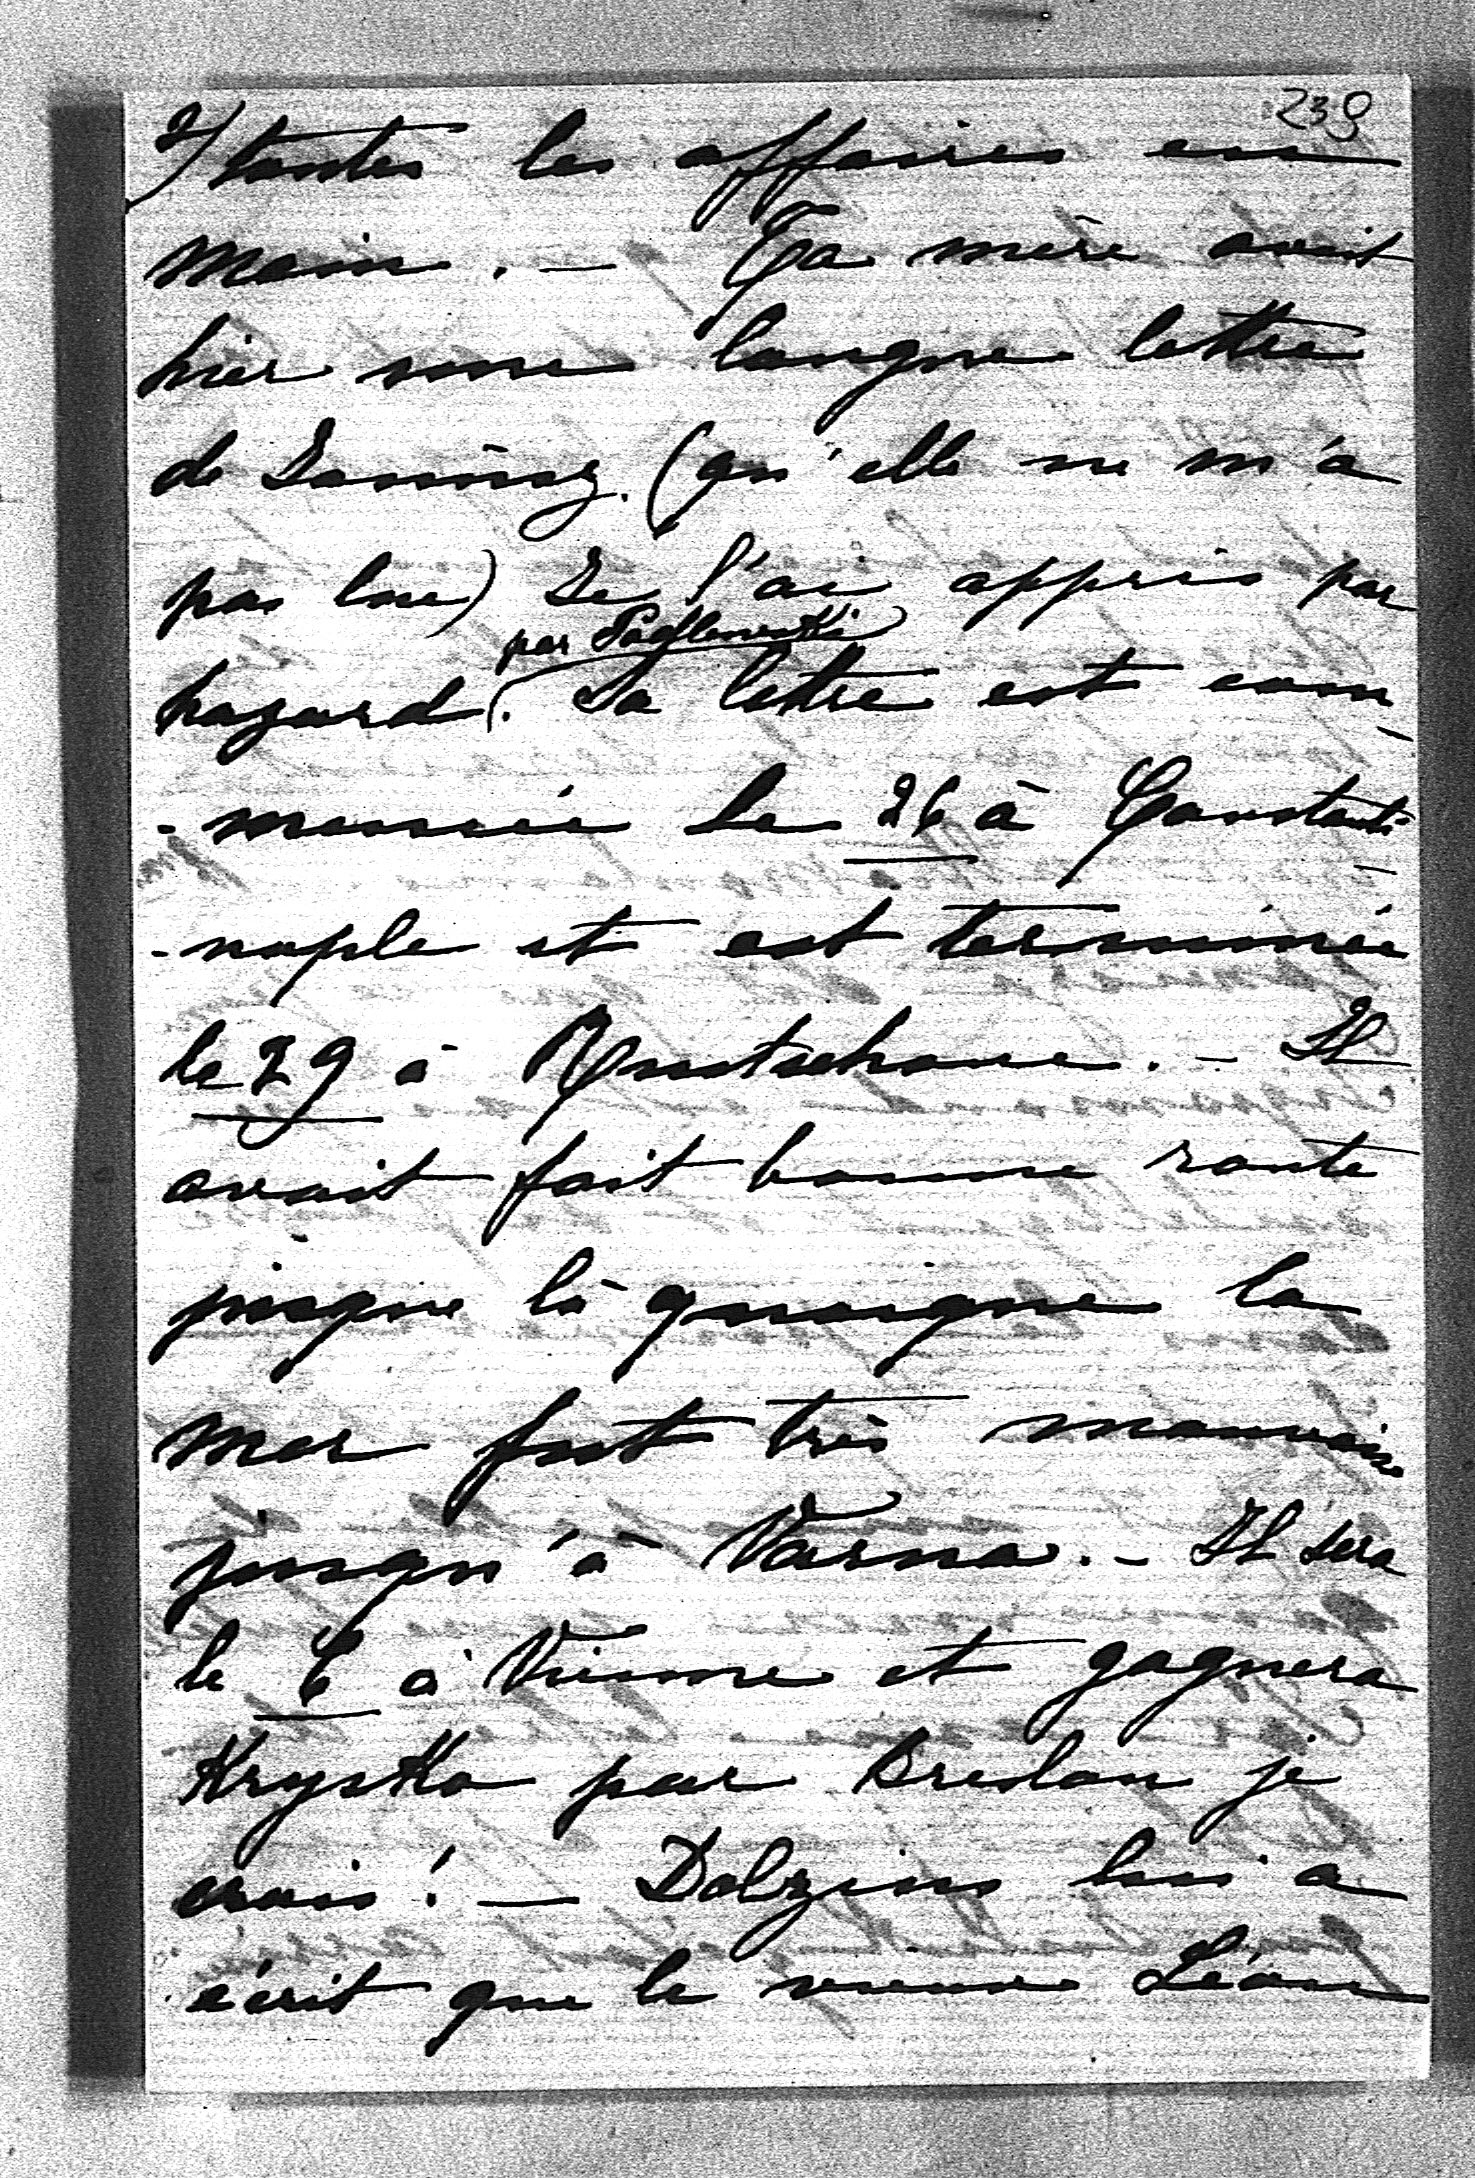 239
2) toutes les affaires en
main. — Ta mère avait
hier une longue lettre
de (qu'elle ne m'a
pas lue) Je l'ai appris par
par
hazard. Sa lettre est com-
-mencée le 26 à Constanti-
-nople et est terminée
le 29 à Rustschouc. — Il
avait fait bonne route
jusque là quoique la
mer fut très mauvaise
jusqu'à Varna. — Il sera
le 6 à Vienne et gagnera
Krysko par Breslau je
crois! — lui a
écrit que le vieux Léon